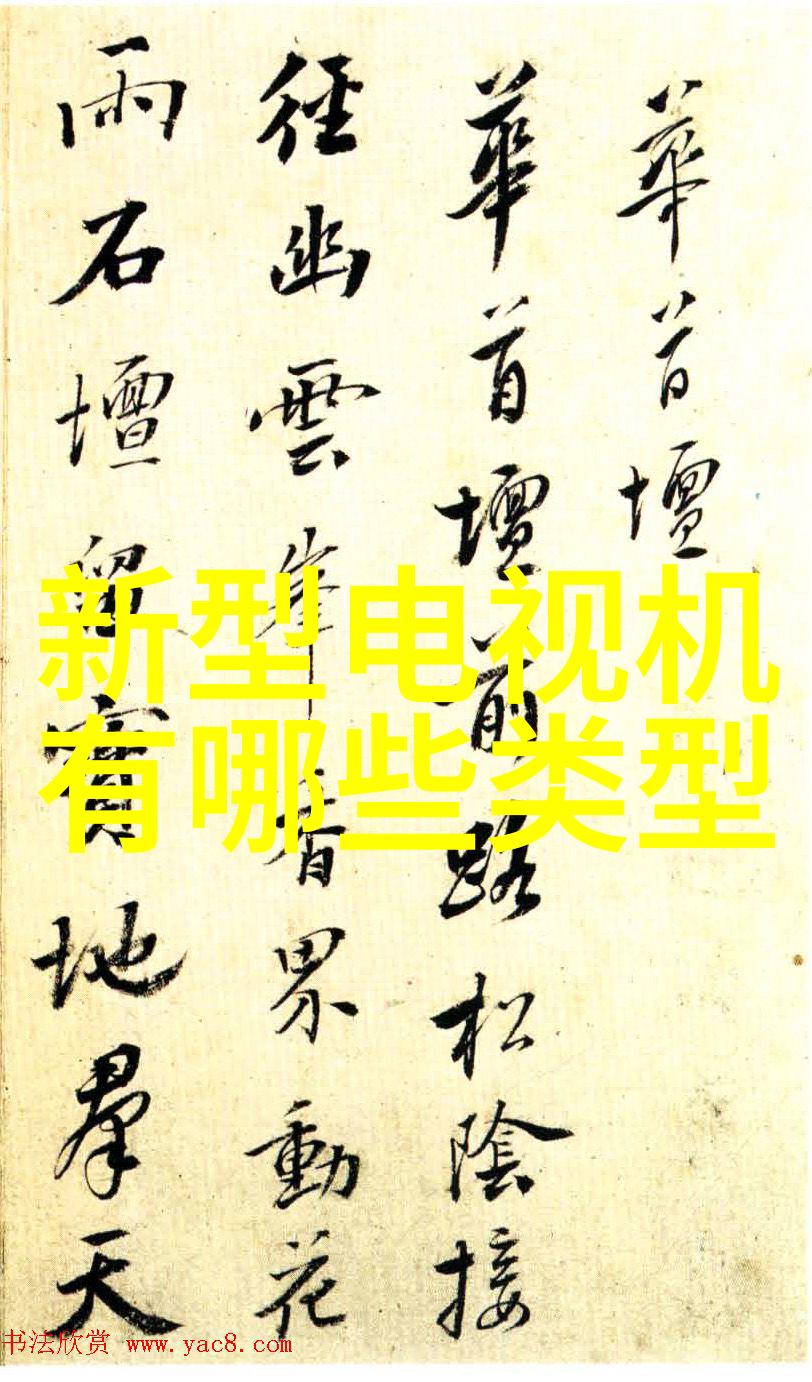 華首壇
華首壇前路松陰接
徑幽雲岸香界動花
雨石壇留寶地羣天
新型电视机
有哪些类型
书法欣赏 www.yac8.com